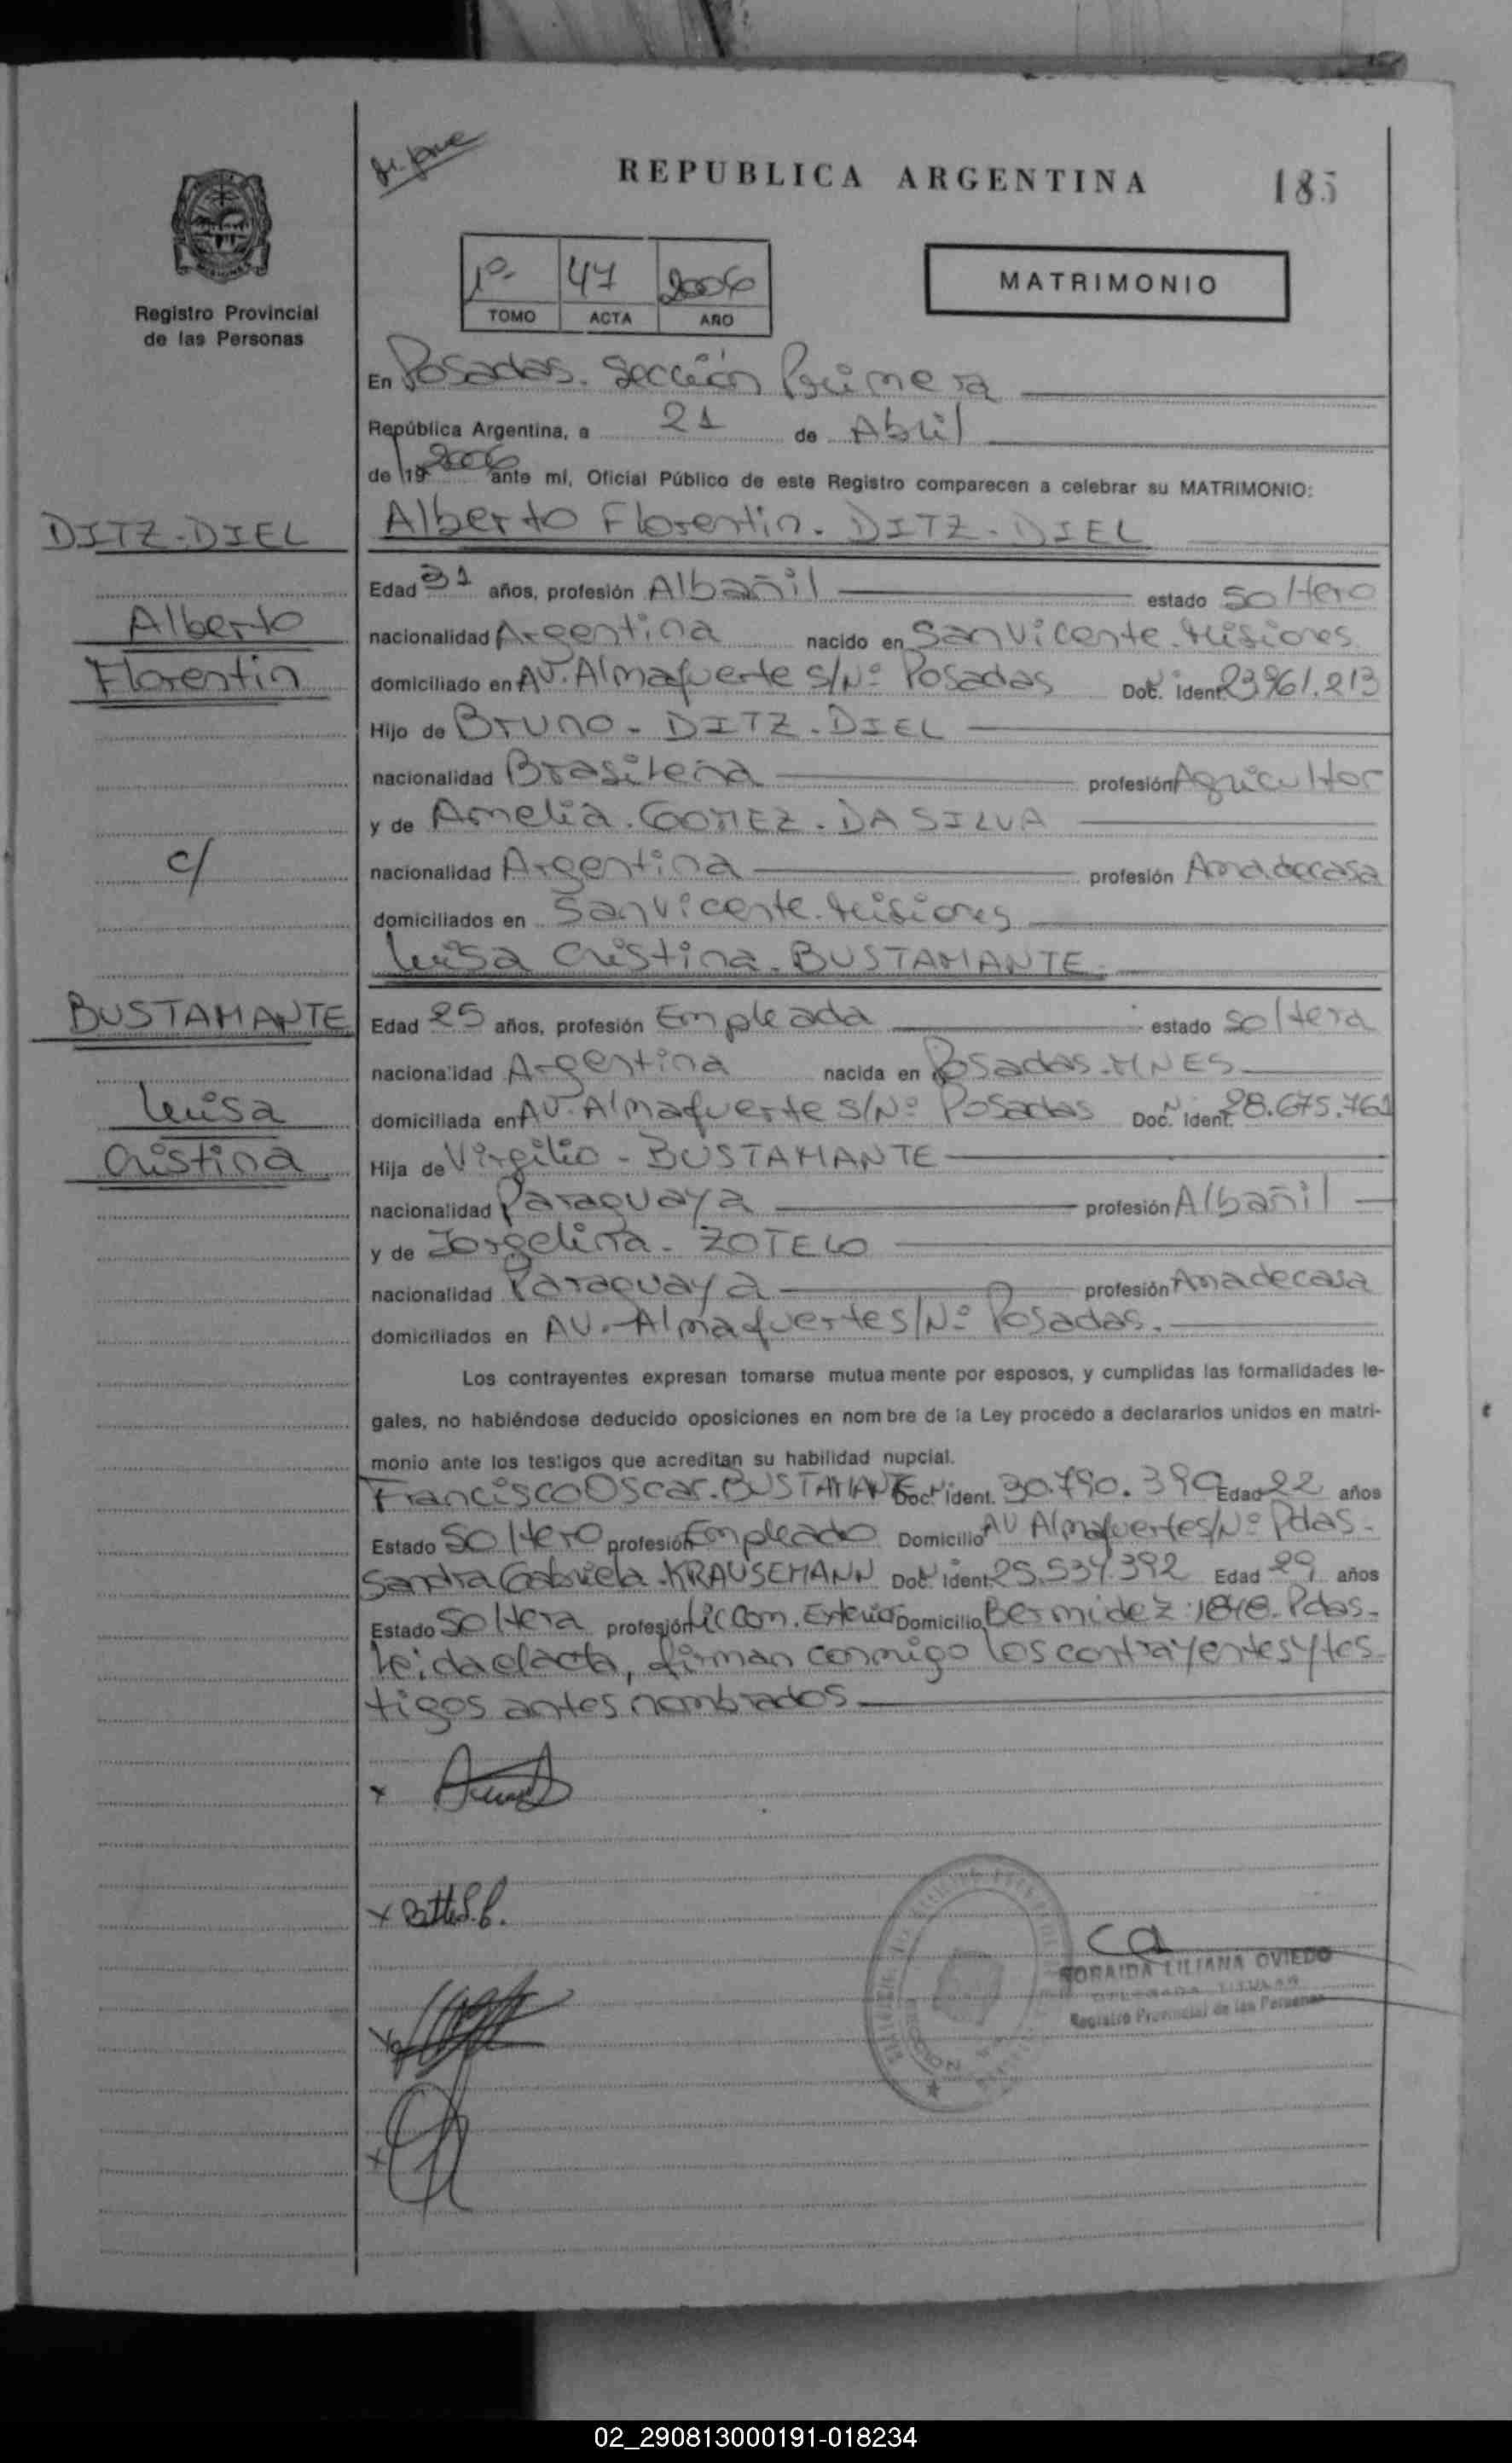 REPUBLICA ARGENTINA
185
1º 47 2006
TOMO ACTA AÑO
MATRIMONIO
Registro Provincial
de las Personas
En Posadas. Sección Primera
República Argentina, a 21 de Abril
de 19 2006 ante mí, Oficial Público de este Registro comparecen a celebrar su MATRIMONIO:
DITZ-DIEL
Alberto
Florentin
c/
BUSTAMANTE
Luisa
Cristina
Alberto Florentin. DITZ-DIEL
Edad 31 años, profesión Albañil estado Soltero
nacionalidad Argentina nacido en San Vicente. Misiones
domiciliado en AV. Almafuerte S/Nº Posadas Doc. Ident. 23.961.213
Hijo de Bruno - DITZ-DIEL
nacionalidad Brasileña profesión Agricultor
y de Amelia. GOMEZ-DA SILVA
nacionalidad Argentina profesión Ama de casa
domiciliados en San Vicente. Misiones
Luisa Cristina. BUSTAMANTE
Edad 25 años, profesión Empleada estado Soltera
nacionalidad Argentina nacida en Posadas. MNES
domiciliada en AV. Almafuerte S/Nº Posadas Doc. Ident. 28.675.761
Hija de Virgilio - BUSTAMANTE
nacionalidad Paraguaya profesión Albañil
y de Jorgelina - ZOTELO
nacionalidad Paraguaya profesión Ama de casa
domiciliados en AV. Almafuerte S/Nº Posadas.
Los contrayentes expresan tomarse mutua mente por esposos, y cumplidas las formalidades le-
gales, no habiéndose deducido oposiciones en nom bre de la Ley procedo a declararlos unidos en matri-
monio ante los testigos que acreditan su habilidad nupcial.
Francisco Oscar. BUSTAMANTE Doc. ident. 30.790.390 Edad 22 años
Estado Soltero profesión Empleado Domicilio AV Almafuerte S/Nº Pdas-
Sandra Gabriela. KRAUSEMANN Doc. ident. 25.537.392 Edad 29 años
Estado Soltera profesión Lic Com. Exterior Domicilio Bermidez 1848-Pdas-
Leida el acta, firman conmigo los contrayentes y tes
tigos antes nombrados
ZORAIDA LILIANA OVIEDO
TITULAR
Registro Provincial de las Personas
02_290813000191-018234